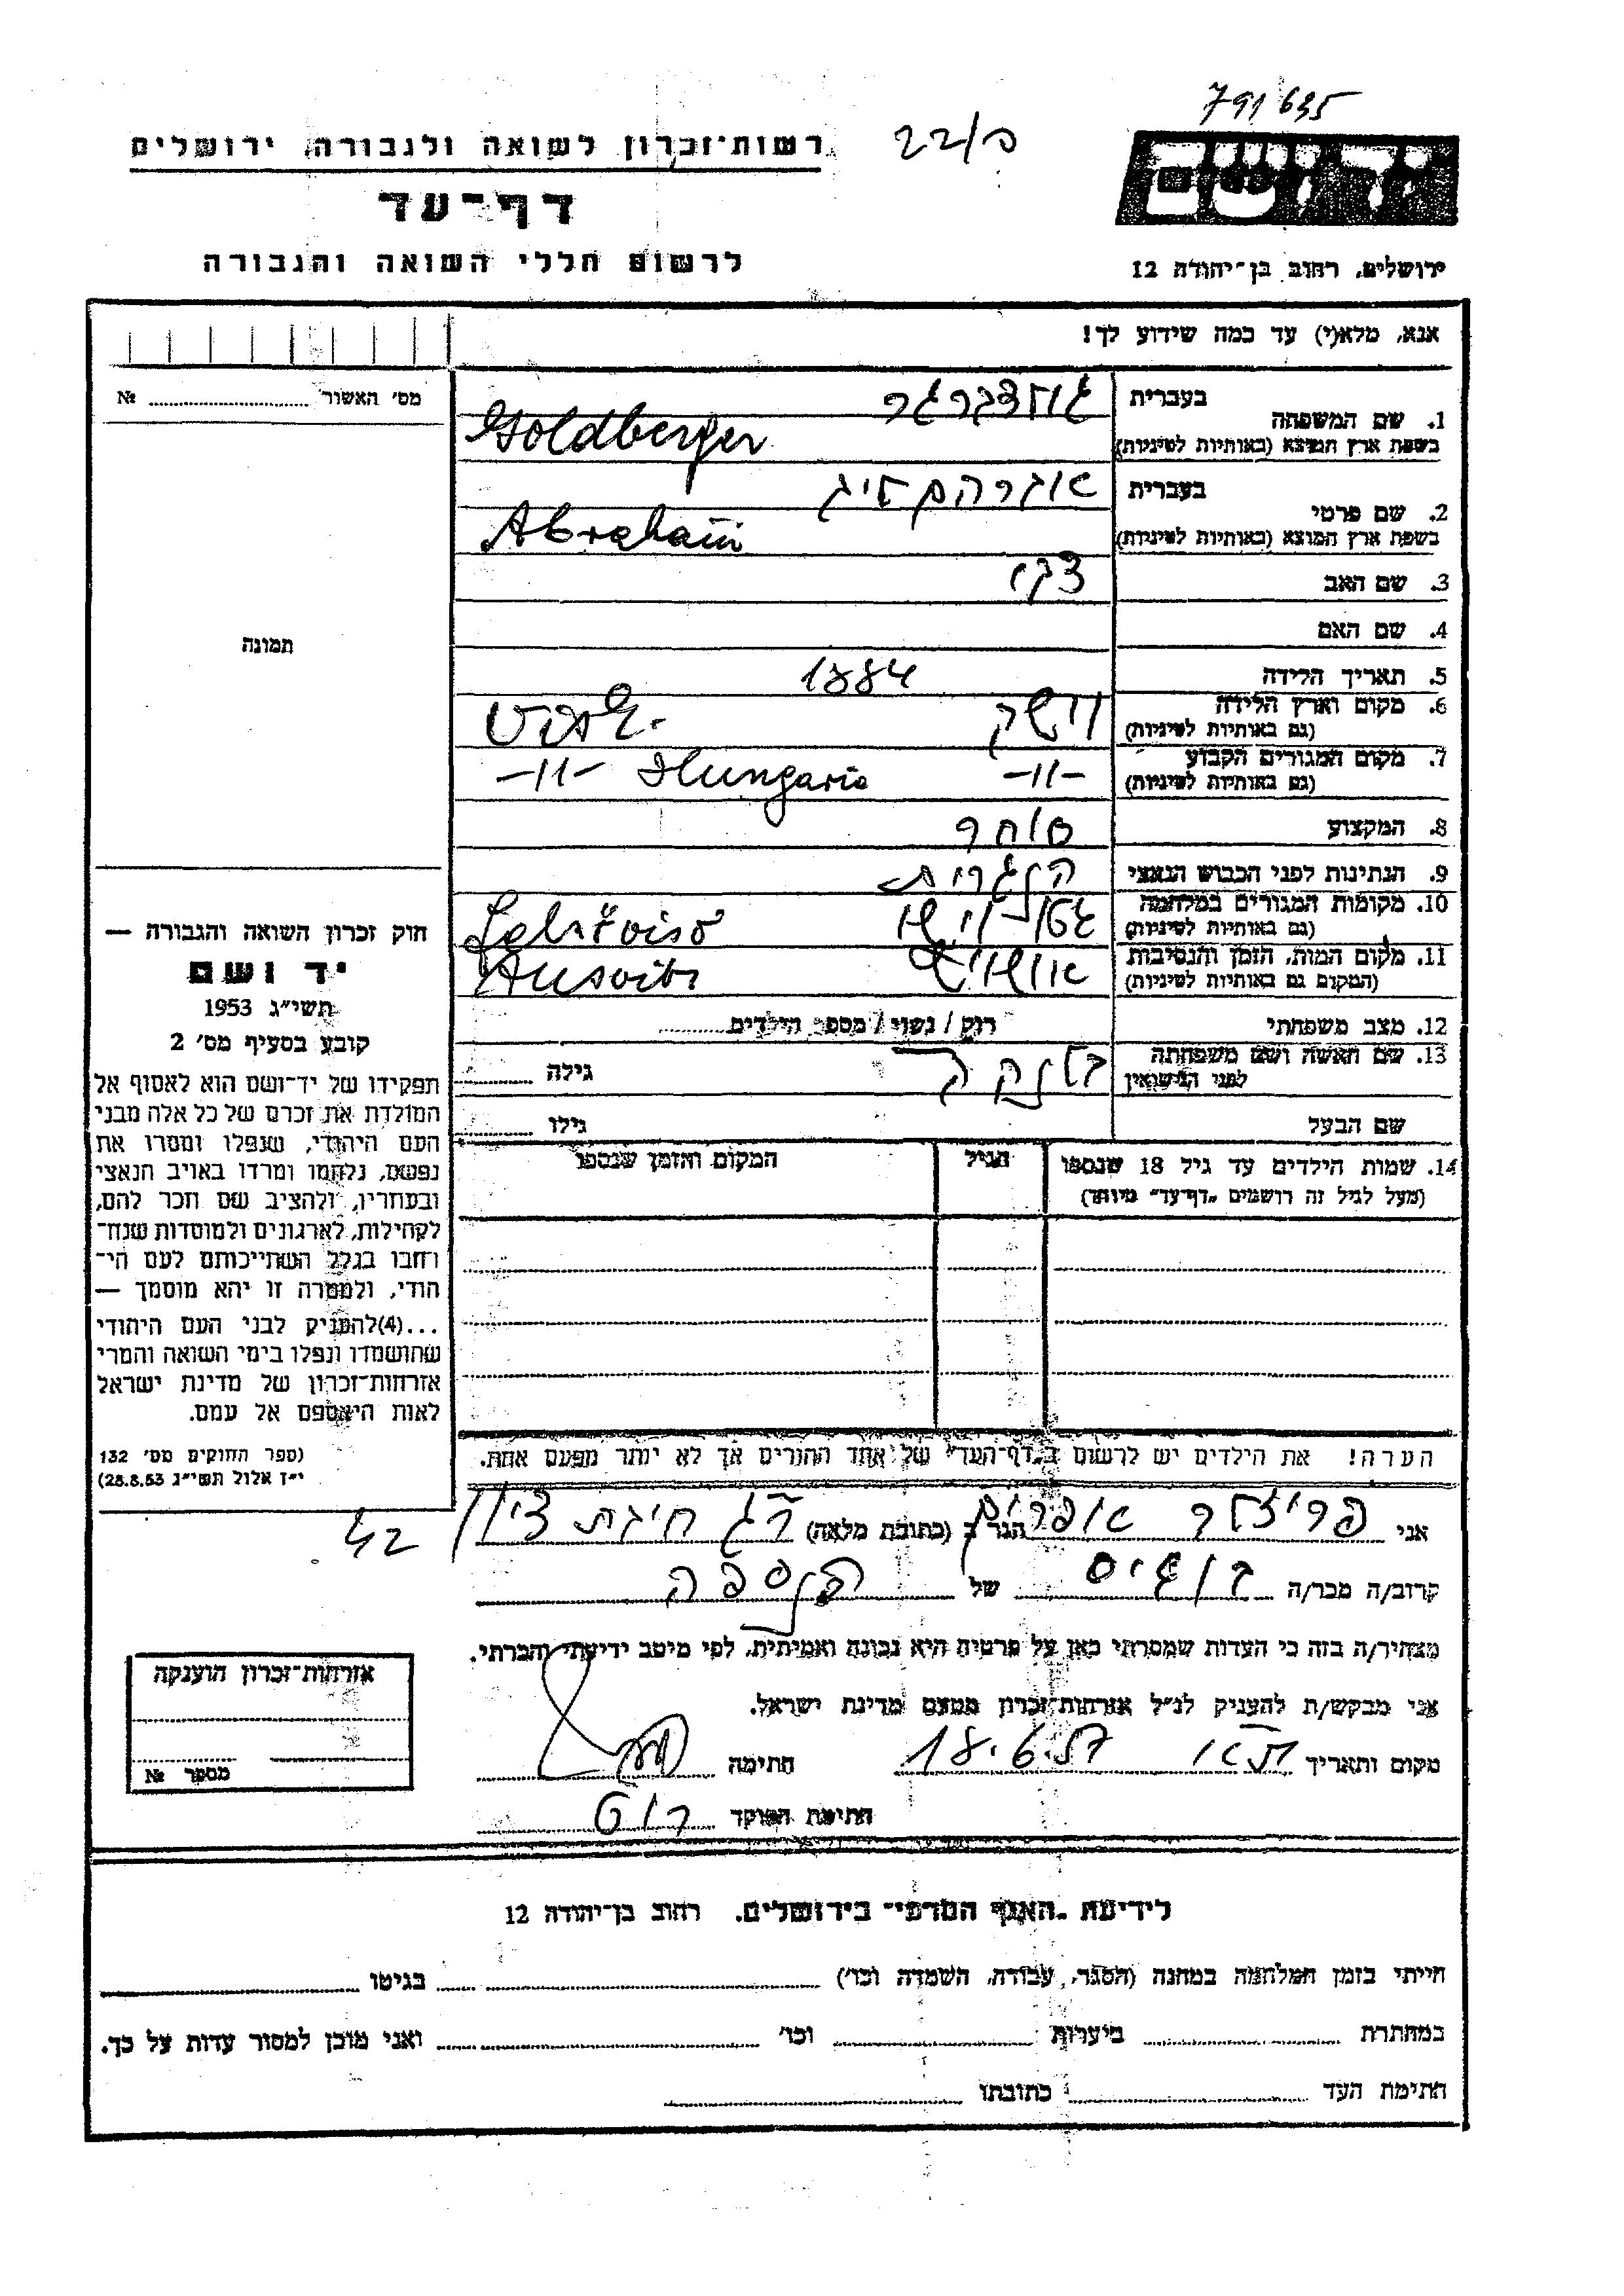 791635
רשות־זכרון לשואה ולגבורה, ירושלים
22/ס
יד ושם
דף־עד
לרשום חללי השואה והגבורה
ירושלים, רחוב בן־יהודה 12
אנא, מלא(י) עד כמה שידוע לך!
מס׳ האשור № ..........
1. שם המשפחה בעברית גולדברגר
בשפת ארץ המוצא (באותיות לטיניות) Goldberger
2. שם פרטי בעברית אברהם
בשפת ארץ המוצא (באותיות לטיניות) Abraham
3. שם האב צבי
4. שם האם
תמונה
5. תאריך הלידה 1884
6. מקום וארץ הלידה
(גם באותיות לטיניות)
7. מקום המגורים הקבוע -11- Hungaria -11-
(גם באותיות לטיניות)
8. המקצוע סוחר
9. הנתינות לפני הכבוש הנאצי הונגרית
10. מקומות המגורים במלחמה
(גם באותיות לטיניות)
11. מקום המות, הזמן והנסיבות אושויץ Ausvitz
(המקום גם באותיות לטיניות)
12. מצב משפחתי רוק / נשוי / מספר הילדים ..........
13. שם האשה ושם משפחתה לפני הנישואין בלנקה גילה ..........
שם הבעל גילו ..........
14. שמות הילדים עד גיל 18 שנספו הגיל המקום והזמן שנספו
(מעל לגיל זה רושמים „דף־עד״ מיוחד)
הערה! את הילדים יש לרשום ב„דף־העד״ של אחד ההורים אך לא יותר מפעם אחת.
חוק זכרון השואה והגבורה —
יד ושם
תשי״ג 1953
קובע בסעיף מס׳ 2
תפקידו של יד־ושם הוא לאסוף אל
המולדת את זכרם של כל אלה מבני
העם היהודי, שנפלו ומסרו את
נפשם, נלחמו ומרדו באויב הנאצי
ובעוזריו, ולהציב שם וזכר להם,
לקהילות, לארגונים ולמוסדות שנח־
רחבו בגלל השתייכותם לעם הי־
הודי, ולמטרה זו יהא מוסמך —
...(4)להעניק לבני העם היהודי
שהושמדו ונפלו בימי השואה והמרי
אזרחות־זכרון של מדינת ישראל
לאות היאספם אל עמם.
(ספר החוקים מס׳ 132
י״ז אלול תשי״ג 28.8.53)
אני אפרים הגר ב (כתובת מלאה) חיבת ציון 42
קרוב/ה מכר/ה של הנספה
מצהיר/ה בזה כי העדות שמסרתי כאן על פרטיה היא נכונה ואמיתית, לפי מיטב ידיעתי והכרתי.
אני מבקש/ת להעניק לנ״ל אזרחות־זכרון מטעם מדינת ישראל.
מקום ותאריך 18.6.57 חתימה
חתימת הפוקד רוט
אזרחות־זכרון הוענקה
מספר №
לידיעת „האגף המדעי״ בירושלים, רחוב בן־יהודה 12
הייתי בזמן המלחמה במחנה (הסגר, עבודה, השמדה וכו׳) .......... בגיטו ..........
במחתרת .......... ביערות .......... וכו׳ .......... ואני מוכן למסור עדות על כך.
חתימת העד .......... כתובתו ..........